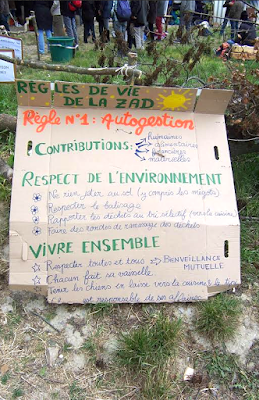 RÈGLES DE VIE
DE LA ZAD
Règle N°1 : Autogestion
CONTRIBUTIONS:
humaines
alimentaires
financières
matérielles
RESPECT DE L'ENVIRONNEMENT
Ne rien jeter au sol (y compris les mégots)
Respecter le balisage
Rapporter les déchets au tri sélectif (vers la cuisine)
Faire des rondes de ramassage des déchets
VIVRE ENSEMBLE
Respecter toutes et tous → BIENVEILLANCE
MUTUELLE
Chacun fait sa vaisselle
Tenir les chiens en laisse vers la cuisine &
est responsable de ses affaires